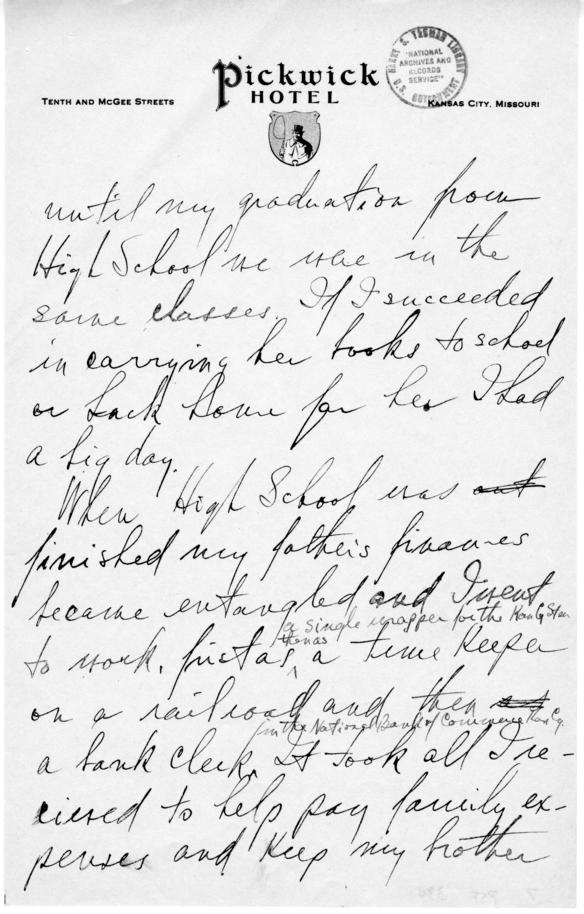 HARRY S. TRUMAN LIBRARY
"NATIONAL
ARCHIVES AND
RECORDS
SERVICE"
U.S. GOVERNMENT
Pickwick
HOTEL
TENTH AND MCGEE STREETS
KANSAS CITY, MISSOURI
until my graduation from
High School we were in the
same classes. If I succeeded
in carrying her books to school
or back home for her I had
a big day.
When High School was out
finished my father's finances
became entangled and I went
a single wrapper for the Kan Cy Star
then as
to work, first as a time keeper
on a railroad and then as
in the National Bank of Commerce Kan. Cy.
a bank clerk. It took all I re-
cieved to help pay family ex-
penses and keep my brother